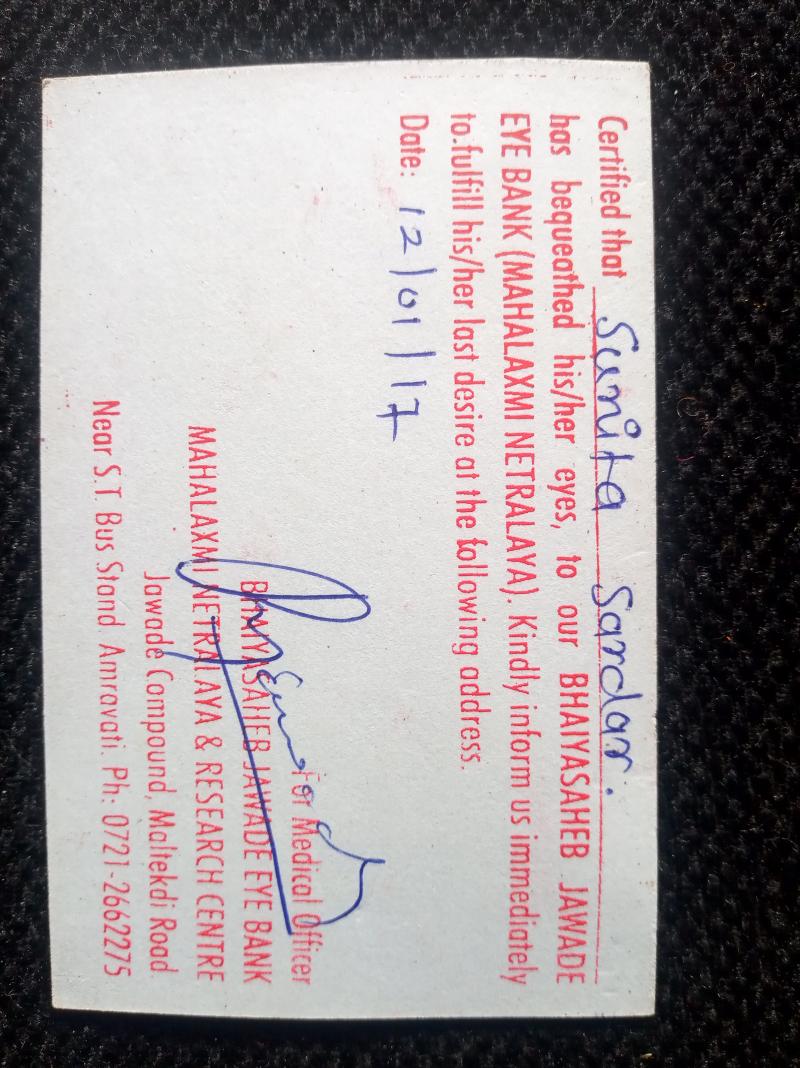 Certified that Sunita Sardar.
has bequeathed his/her eyes, to our BHAIYASAHEB JAWADE
EYE BANK (MAHALAXMI NETRALAYA). Kindly inform us immediately
to fulfill his/her last desire at the following address.
Date: 12/01/17
For Medical Officer
BHAIYASAHEB JAWADE EYE BANK
MAHALAXMI NETRALAYA & RESEARCH CENTRE
Jawade Compound, Maltekdi Road
Near S.T. Bus Stand. Amravati. Ph: 0721-2662275